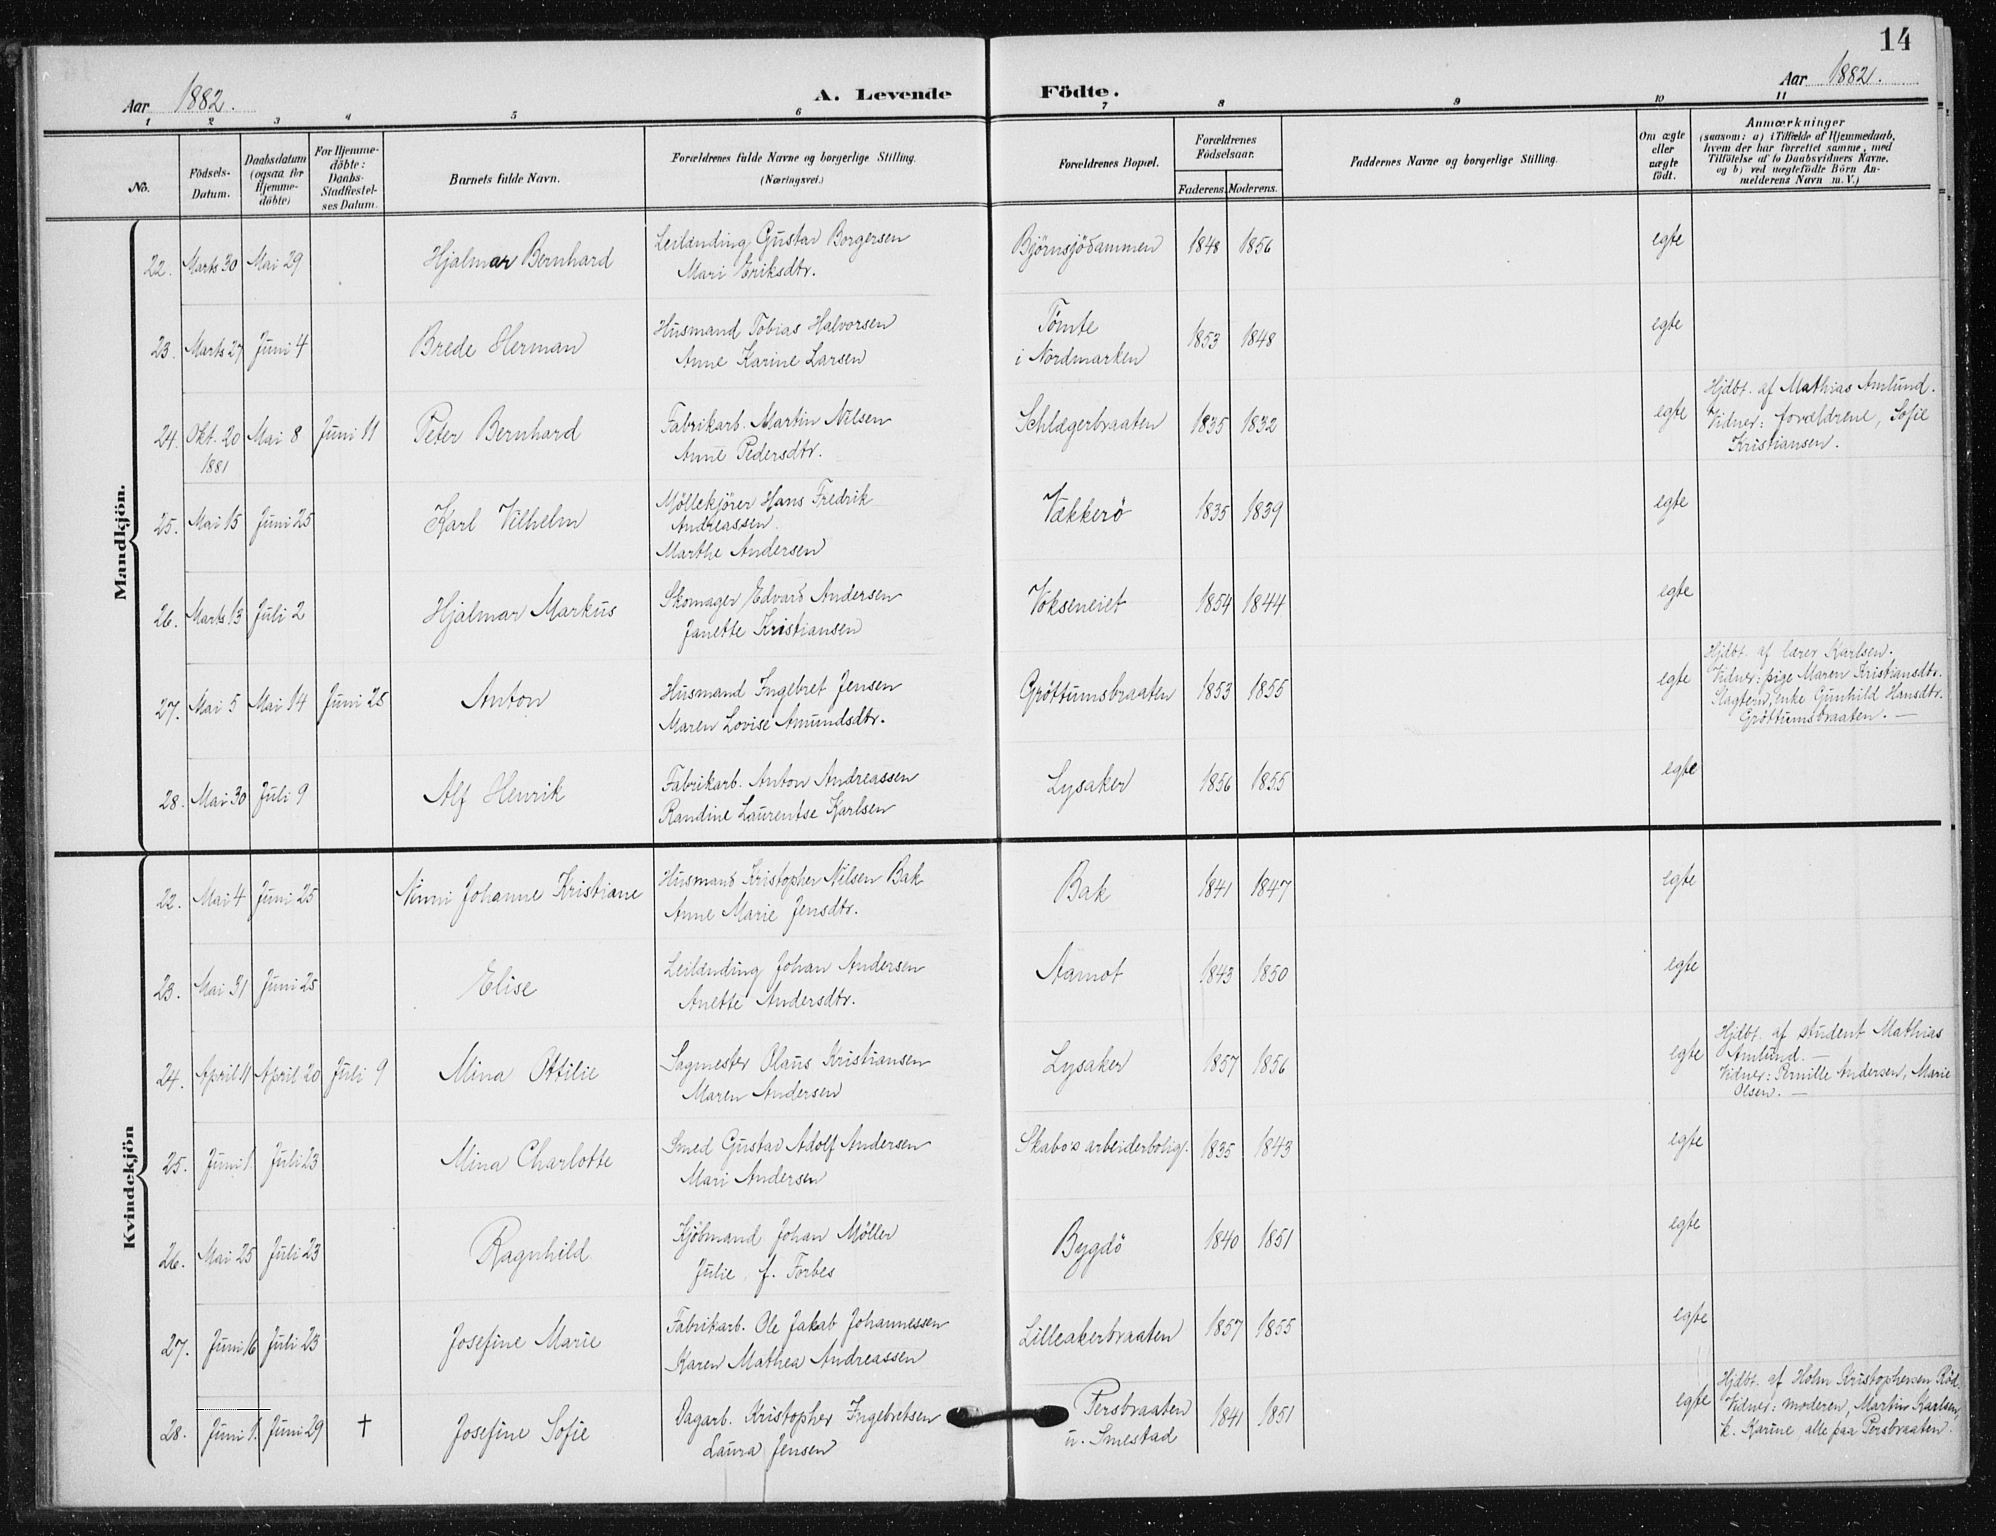 14
Aar 1882.
A. Levende Födte.
Aar 1882.
1 2 3 4 5 6 7 8 9 10 11
No.
Födsels-
Datum.
Daabsdatum
(ogsaa for
Hjemme-
döbte)
For Hjemme-
döbte:
Daabs-
Stadfæstel-
ses Datum.
Barnets fulde Navn.
Forældrenes fulde Navne og borgerlige Stilling.
(Næringsvei.)
Forældrenes Bopæl.
Forældrenes
Födselsaar.
Faderens. Moderens.
Faddernes Navne og borgerlige Stilling.
Om ægte
eller
uægte
födt.
Anmærkninger
(saasom: a) i Tilfælde af Hjemmedaab,
hvem der har forrettet samme, med
Tilföielse af to Daabsvidners Navne,
og b) ved uægtefödte Börn An-
melderens Navn m. V.)
Mandkjön.
22. Marts 30 Mai 29 Hjalmar Bernhard Leilænding Gustav Borgersen
Mari Eriksdtr. Bjørnsjödammen 1848 1856 egte
23. Marts 27 Juni 4 Brede Herman Husmand Tobias Halvorsen
Anne Karine Larsen Tømte
i Nordmarken 1853 1848 egte
24. Okt. 20
1881 Mai 8 Juni 11 Peter Bernhard Fabrikarb. Martin Nilsen
Anne Pedersdtr. Schlægerbraaten 1835 1832 egte Hjdbt. af Mathias Amlund.
Vidner: forældrene, Sofie
Kristiansen.
25. Mai 15 Juni 25 Karl Vilhelm Møllekjører Hans Fredrik
Andreassen
Marthe Andersen Vækkerö 1835 1839 egte
26. Marts 13 Juli 2 Hjalmar Markus Skomager Edvard Andersen
Janette Kristiansen Vokseneiet 1854 1844 egte
27. Mai 5 Mai 14 Juni 25 Anton Husmand Ingebret Jensen
Maren Lovise Amundsdtr. Grøttumsbraaten 1853 1855 egte Hjdbt. af lærer Karlsen.
Vidner: pige Maren Kristiansdtr.
enke Gunhild Hansdtr.
Grøttumsbraaten. —
28. Mai 30 Juli 9 Alf Henrik Fabrikarb. Anton Andreassen
Randine Laurentse Karlsen Lysaker 1856 1855 egte
Kvindekjön
22. Mai 4 Juni 25 Ninni Johanne Kristiane Husmand Kristopher Nilsen Bak
Anne Marie Jensdtr. Bak 1841 1847 egte
23. Mai 31 Juni 25 Elise Leilænding Johan Andersen
Anette Andersdtr. Aamot 1843 1850 egte
24. April 11 April 20 Juli 9 Mina Ottilie Sagmester Olaus Kristiansen
Maren Andersen Lysaker 1857 1856 egte Hjdbt. af student Mathias
Amlund. —
Vidner: Pernille Andersen, Marie
Olsen. —
25. Juni 1. Juli 23 Mina Charlotte Smed Gustav Adolf Andersen
Mari Andersen Skabo's arbeiderbolig. 1835 1843 egte
26. Mai 25 Juli 23 Ragnhild Kjöbmand Johan Møller
Julie, f. Forbes Bygdö 1840 1851 egte
27. Juni 16 Juli 23 Josefine Marie Fabrikarb. Ole Jakob Johannessen
Karen Mathea Andreassen Lilleakerbraaten 1857 1855 egte
28. Juni 1. Juni 29 † Josefine Sofie Dagarb. Kristopher Ingebretsen
Laura Jensen Persbraaten
u. Smestad 1841 1851 egte Hjdbt. af Holm Kristophersen Röd.
Vidner: moderen, Martin Karlsen,
k. Karine, alle paa Persbraaten.